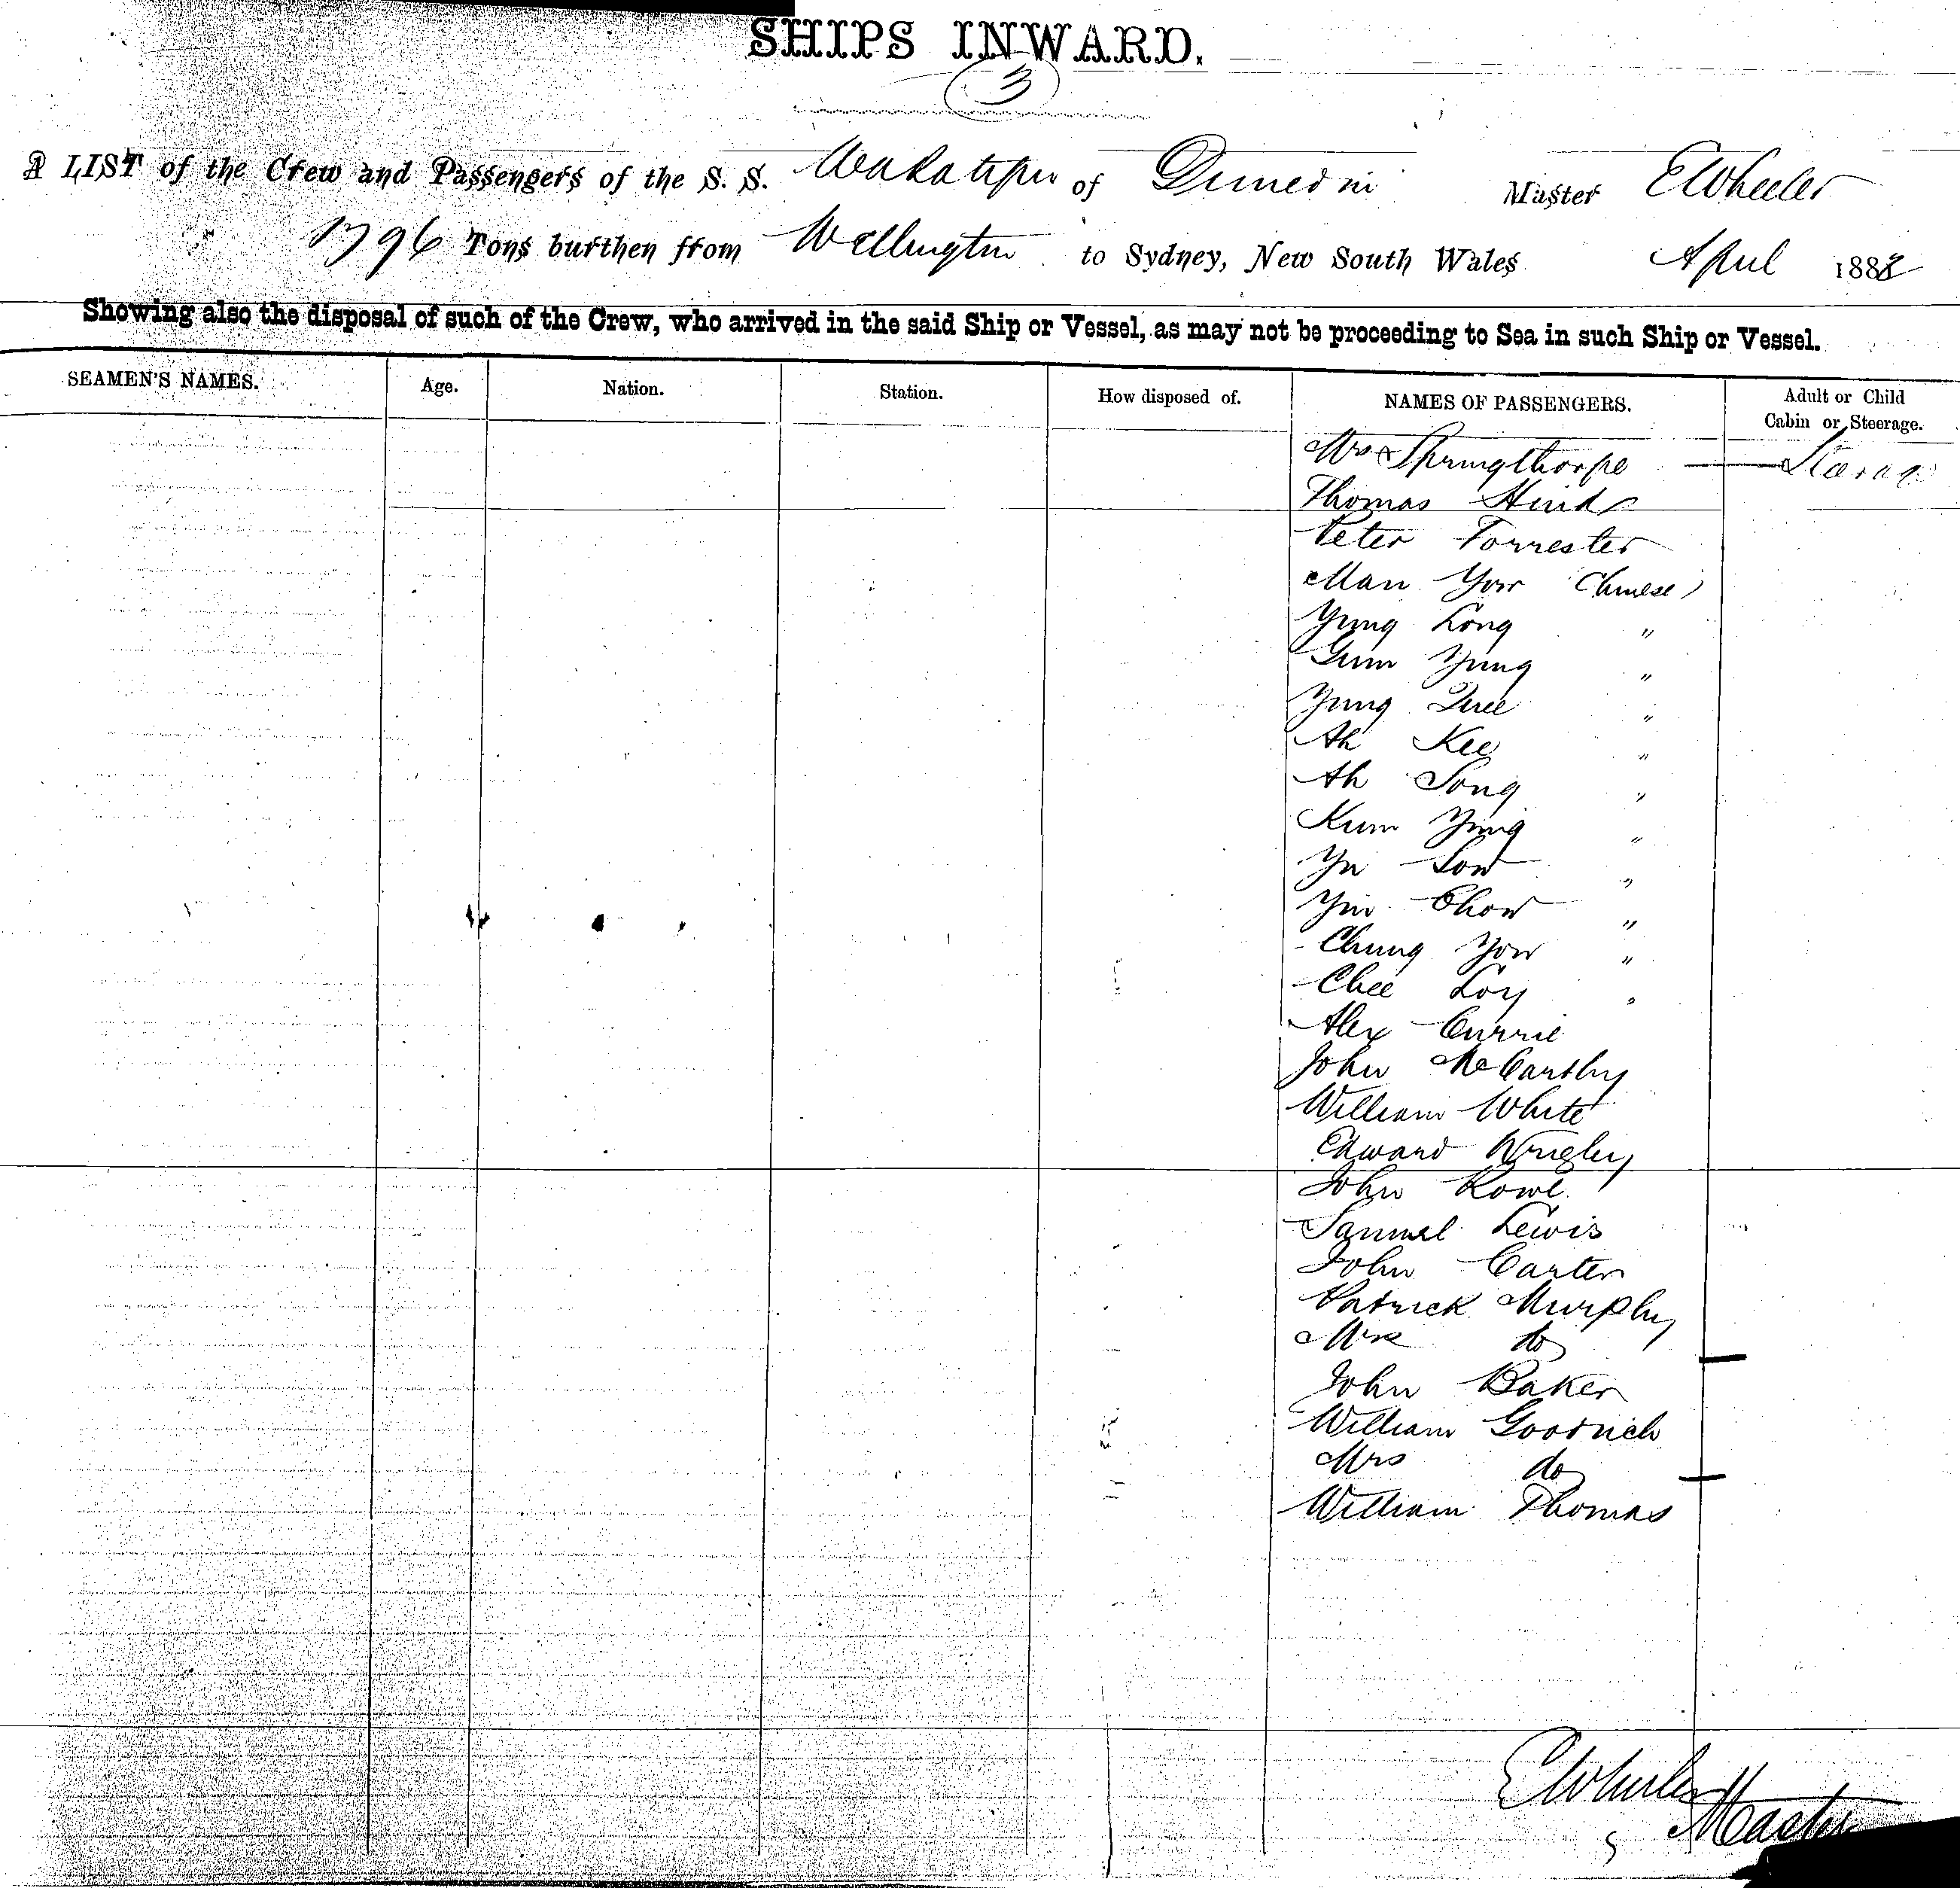 SHIPS INWARD.
3
A LIST of the Crew and Passengers of the S. S. Wakatipu of Dunedin Master E Wheeler
1796 Tons burthen from Wellington to Sydney, New South Wales April 1882
Showing also the disposal of such of the Crew, who arrived in the said Ship or Vessel, as may not be proceeding to Sea in such Ship or Vessel.
SEAMEN'S NAMES. Age. Nation. Station. How disposed of. NAMES OF PASSENGERS. Adult or Child Cabin or Steerage.
Mrs Springthorpe Steerage
Thomas Hinds
Peter Forrester
Man Yow (Chinese)
Yung Long "
Gum Yung "
Yung Quee "
Ah Kee "
Ah Song "
Kum Yung "
Yu Sow "
Yim Chow "
Chung Yow "
Chee Loy "
Alex Currie
John McCarthy
William White
Edward Wrigley
John Rowe
Samuel Lewis
John Carter
Patrick Murphy
Mrs do
John Baker
William Goodrich
Mrs do
William Thomas
E Wheeler
Master